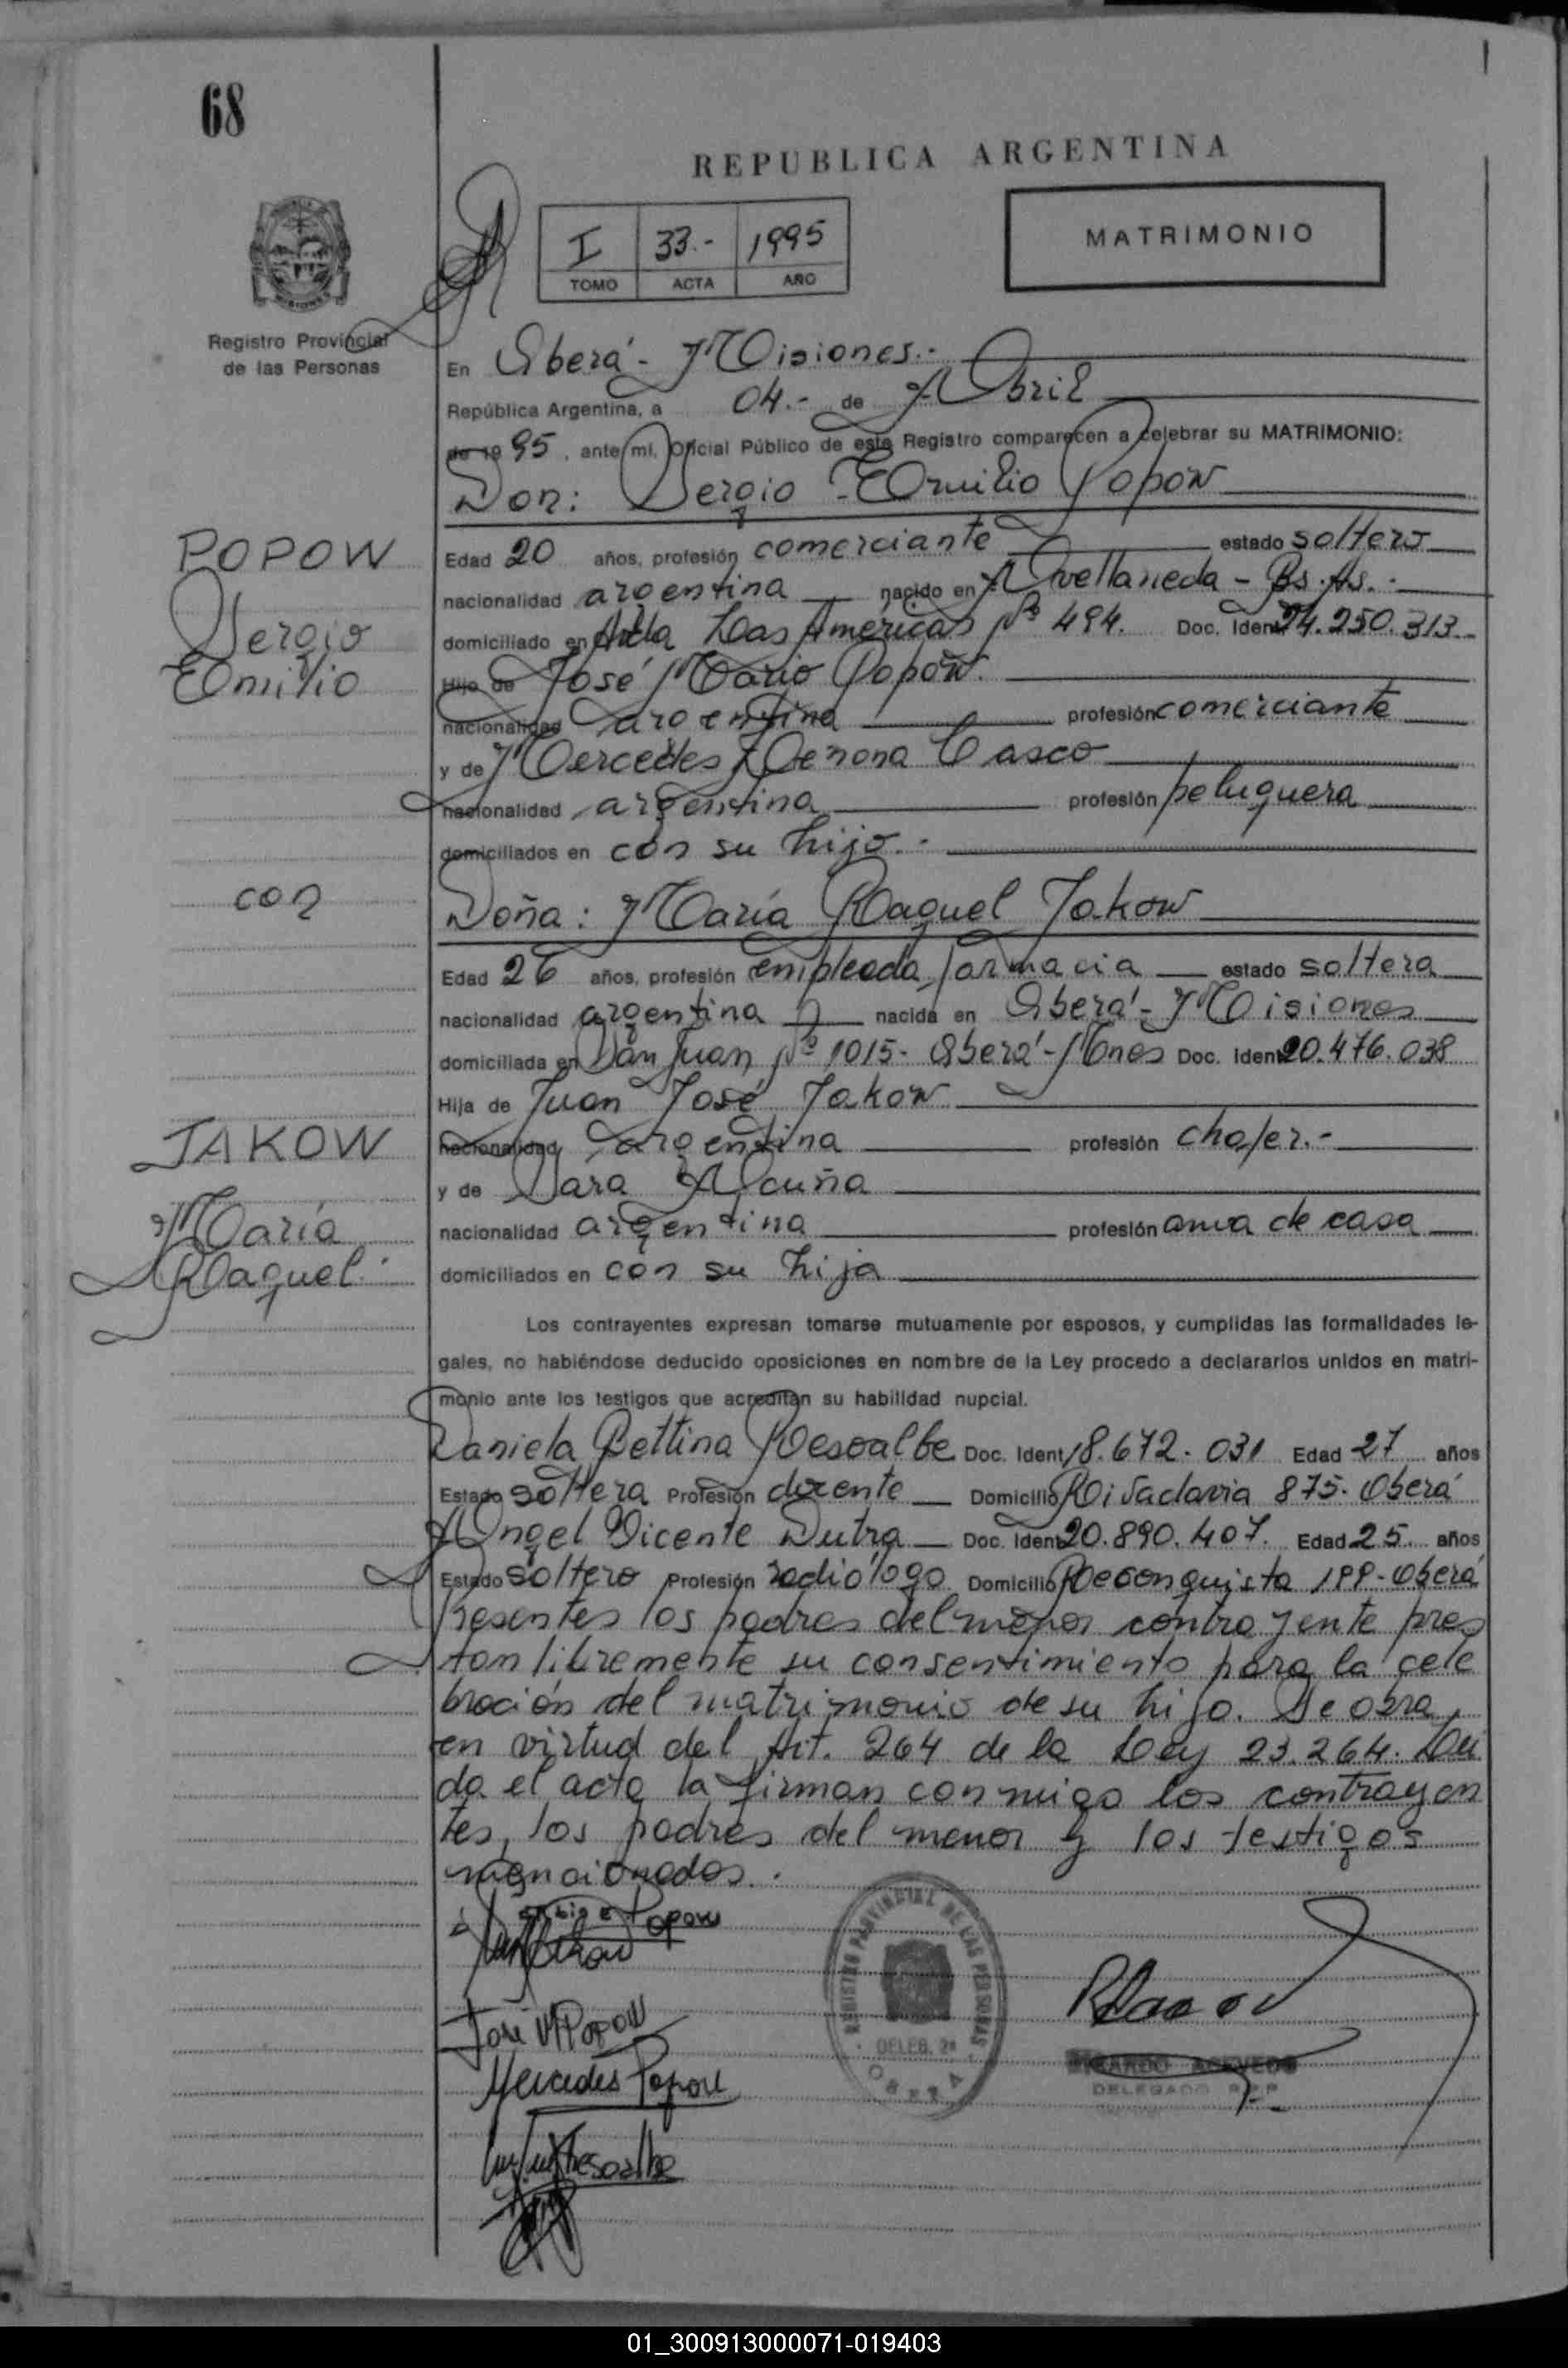 68
REPUBLICA ARGENTINA
I 33.- 1995
TOMO ACTA AÑO
MATRIMONIO
Registro Provincial
de las Personas
En Oberá - Misiones.-
República Argentina, a 04.- de Abril
de 1995, ante mí, Oficial Público de este Registro comparecen a celebrar su MATRIMONIO:
Don: Sergio Emilio Popow
POPOW
Sergio
Emilio
Edad 20 años, profesión comerciante estado soltero
nacionalidad argentina nacido en Avellaneda - Bs. As. -
domiciliado en Avda Las Américas Nº 494. Doc. Ident. 24.250.313
Hijo de José Mario Popow.
nacionalidad argentina profesión comerciante
y de Mercedes Casco
nacionalidad argentina profesión peluquera
domiciliados en con su hijo.-
con
Doña: María Raquel Jakow
Edad 26 años, profesión empleada farmacia estado soltera
nacionalidad argentina nacida en Oberá - Misiones
domiciliada en San Juan Nº 1015- Oberá - Mnes Doc. Ident. 20.476.038
Hija de Juan José Jakow
nacionalidad argentina profesión chofer.-
y de Sara Acuña
nacionalidad argentina profesión ama de casa
domiciliados en con su hija
JAKOW
María
Raquel.
Los contrayentes expresan tomarse mutuamente por esposos, y cumplidas las formalidades le-
gales, no habiéndose deducido oposiciones en nombre de la Ley procedo a declararlos unidos en matri-
monio ante los testigos que acreditan su habilidad nupcial.
Daniela Bettina Resoalbe Doc. Ident. 18.672.031 Edad 27 años
Estado soltera Profesión docente Domicilio Rivadavia 875. Oberá
Angel Vicente Dutra Doc. Ident. 20.890.407. Edad 25. años
Estado soltero Profesión radiólogo Domicilio Reconquista 199- Oberá
Presentes los padres del menor contrayente pres
tan libremente su consentimiento para la cele
bración del matrimonio de su hijo. Se obra
en virtud del Art. 264 de la Ley 23.264. Leí
da el acta la firman conmigo los contrayen
tes, los padres del menor y los testigos
mencionados.
Popow
José M Popow
Mercedes Popow
Resoalbe
REGISTRO PROVINCIAL DE LAS PERSONAS
DELEB. 2ª
OBERA
ACEVEDO
DELEGADO R.P.P.
01_300913000071-019403